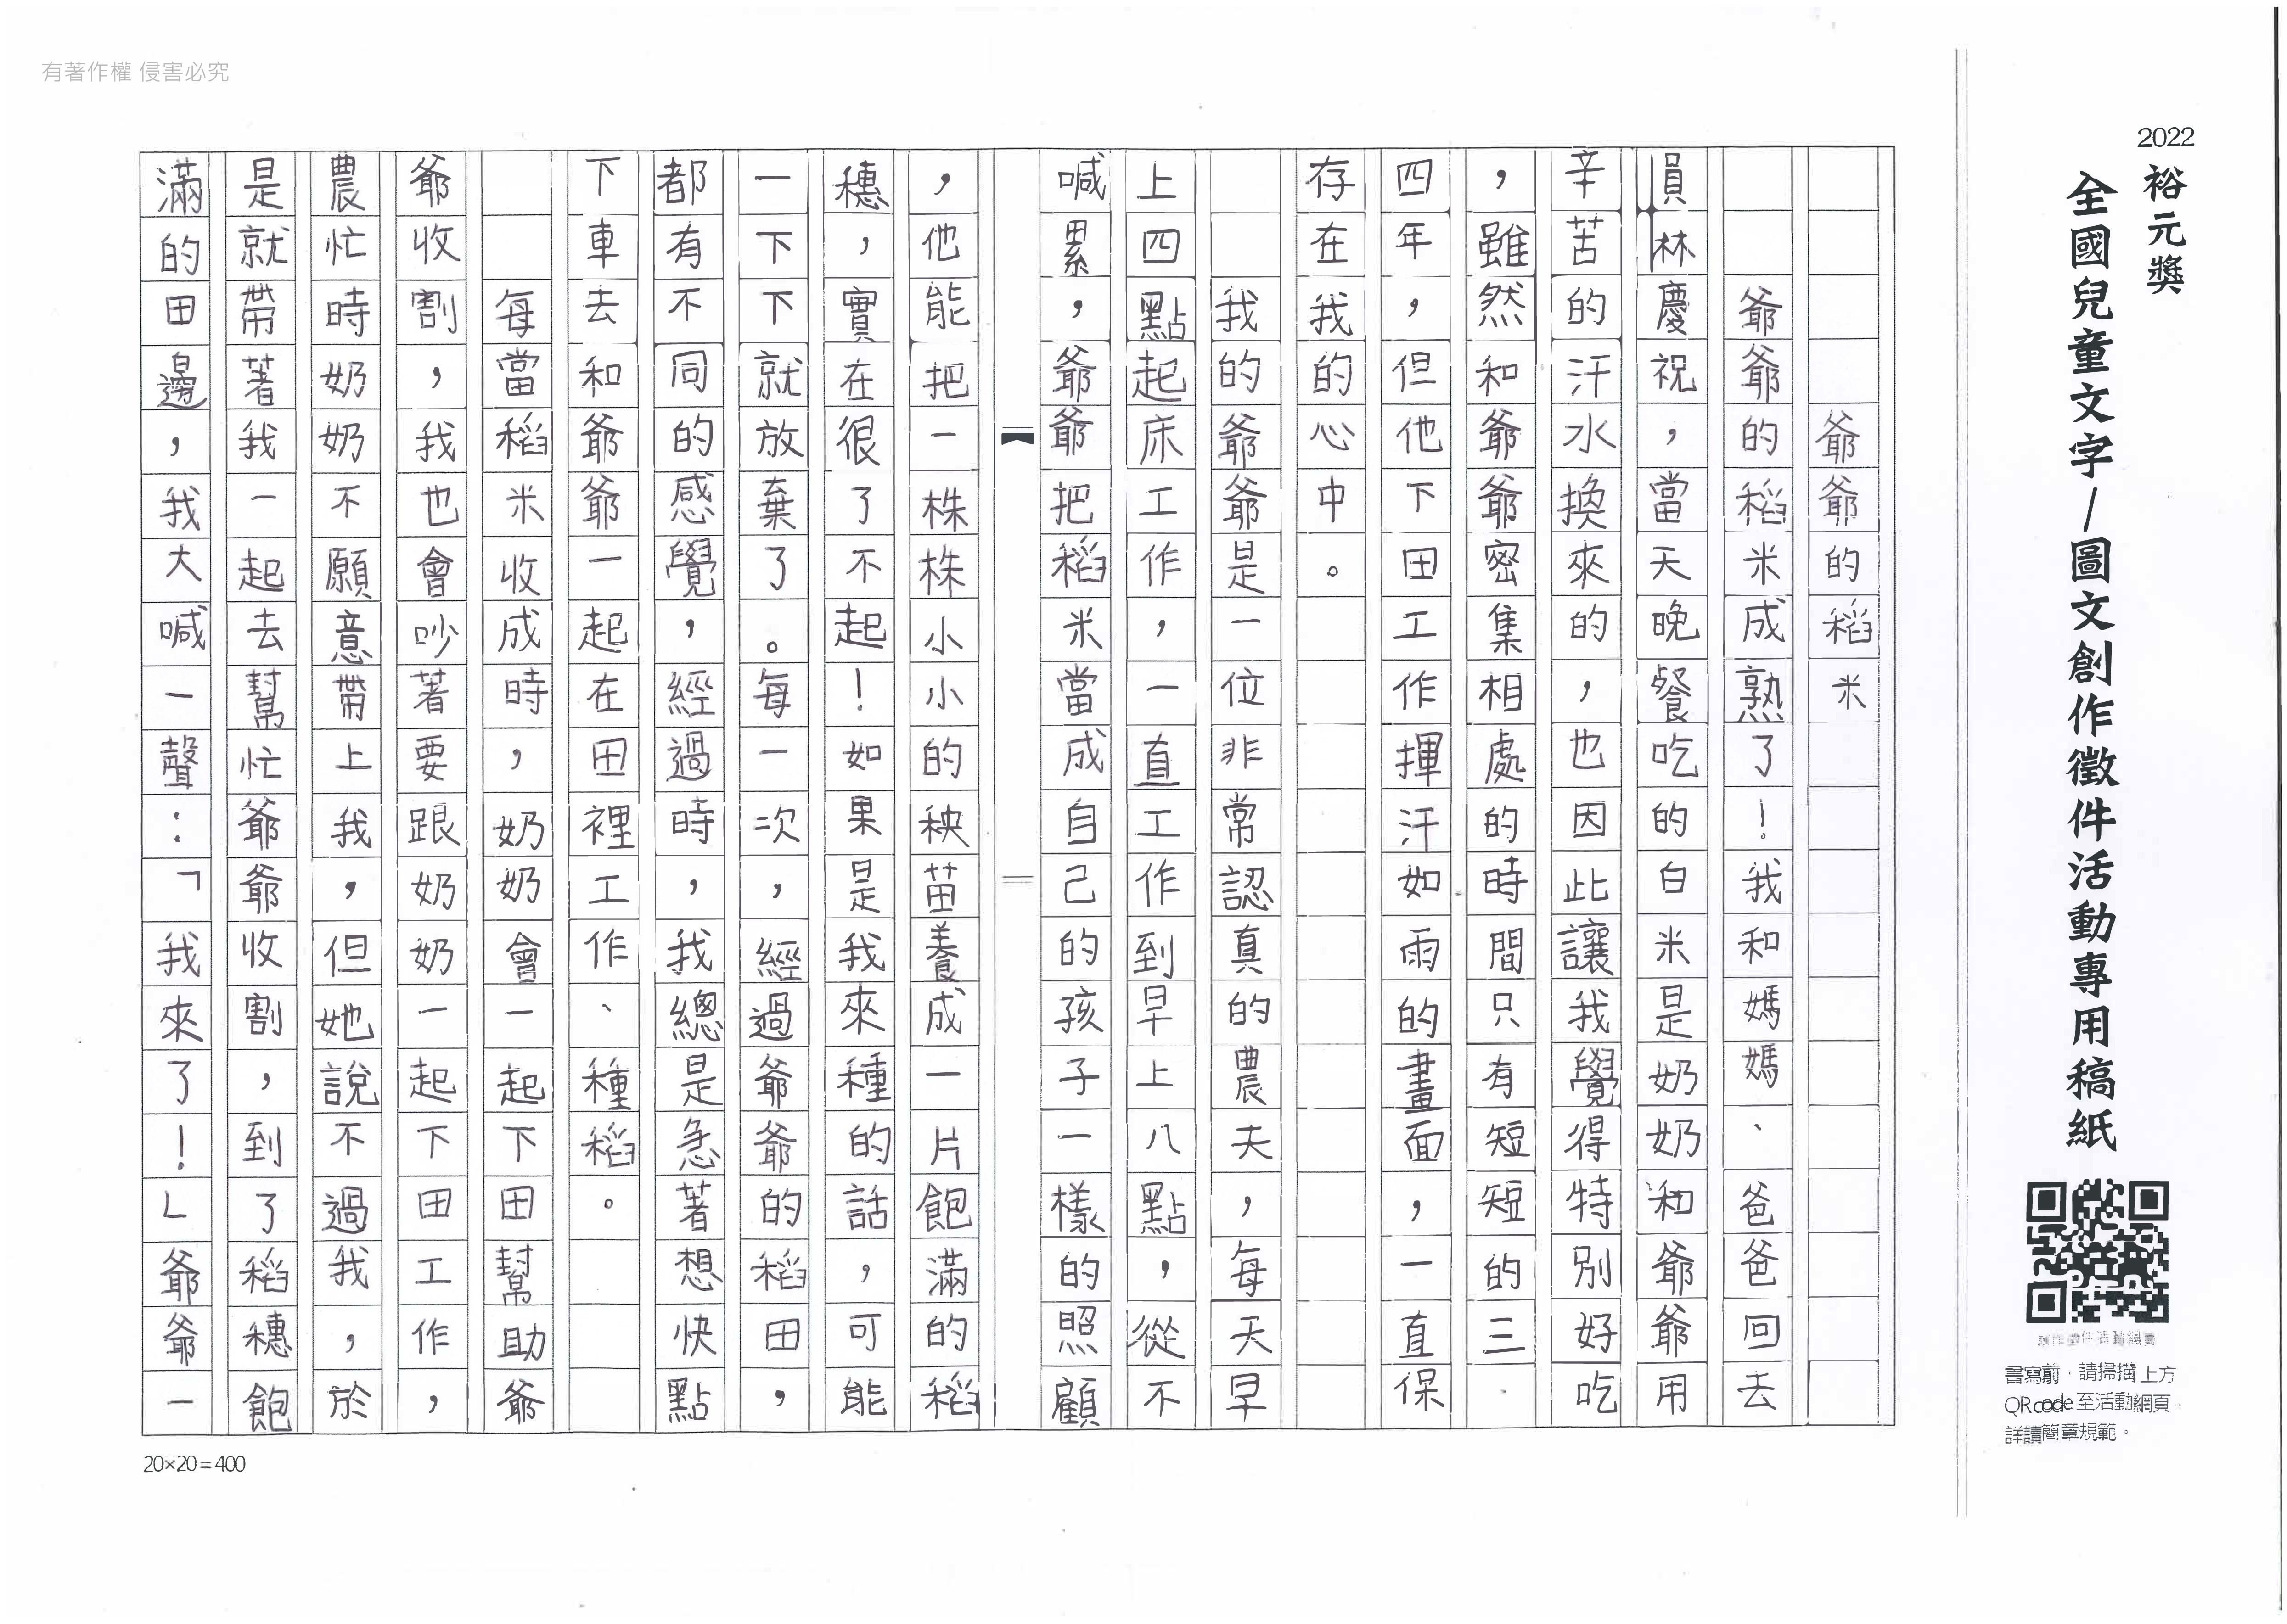 有著作權 侵害必究
2022
裕元獎
全國兒童文字/圖文創作徵件活動專用稿紙
書寫前，請掃描上方
QRcode至活動網頁，
詳讀簡章規範。
爺爺的稻米
爺爺的稻米成熟了！我和媽媽、爸爸回去
員林慶祝，當天晚餐吃的白米是奶奶和爺爺用
辛苦的汗水換來的，也因此讓我覺得特別好吃
，雖然和爺爺密集相處的時間只有短短的三、
四年，但他下田工作揮汗如雨的畫面，一直保
存在我的心中。
我的爺爺是一位非常認真的農夫，每天早
上四點起床工作，一直工作到早上八點，從不
喊累，爺爺把稻米當成自己的孩子一樣的照顧
，他能把一株株小小的秧苗養成一片飽滿的稻
穗，實在很了不起！如果是我來種的話，可能
一下下就放棄了。每一次，經過爺爺的稻田，
都有不同的感覺，經過時，我總是急著想快點
下車去和爺爺一起在田裡工作、種稻。
每當稻米收成時，奶奶會一起下田幫助爺
爺收割，我也會吵著要跟奶奶一起下田工作，
農忙時奶奶不願意帶上我，但她說不過我，於
是就帶著我一起去幫忙爺爺收割，到了稻穗飽
滿的田邊，我大喊一聲：「我來了！」爺爺一
20×20=400